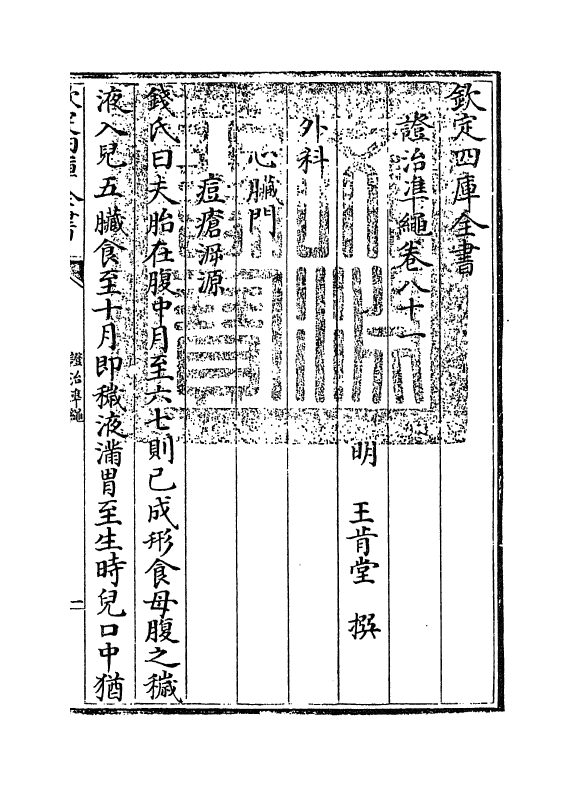 欽定四庫全書
證治準繩卷八十一
明　王肯堂　撰
外科
心臓門
痘瘡淵源
錢氏曰夫胎在腹中月至六七則已成形食母腹之穢
液入兒五臓食至十月即穢液滿胃至生時兒口中猶
欽定四庫全書
證治準繩